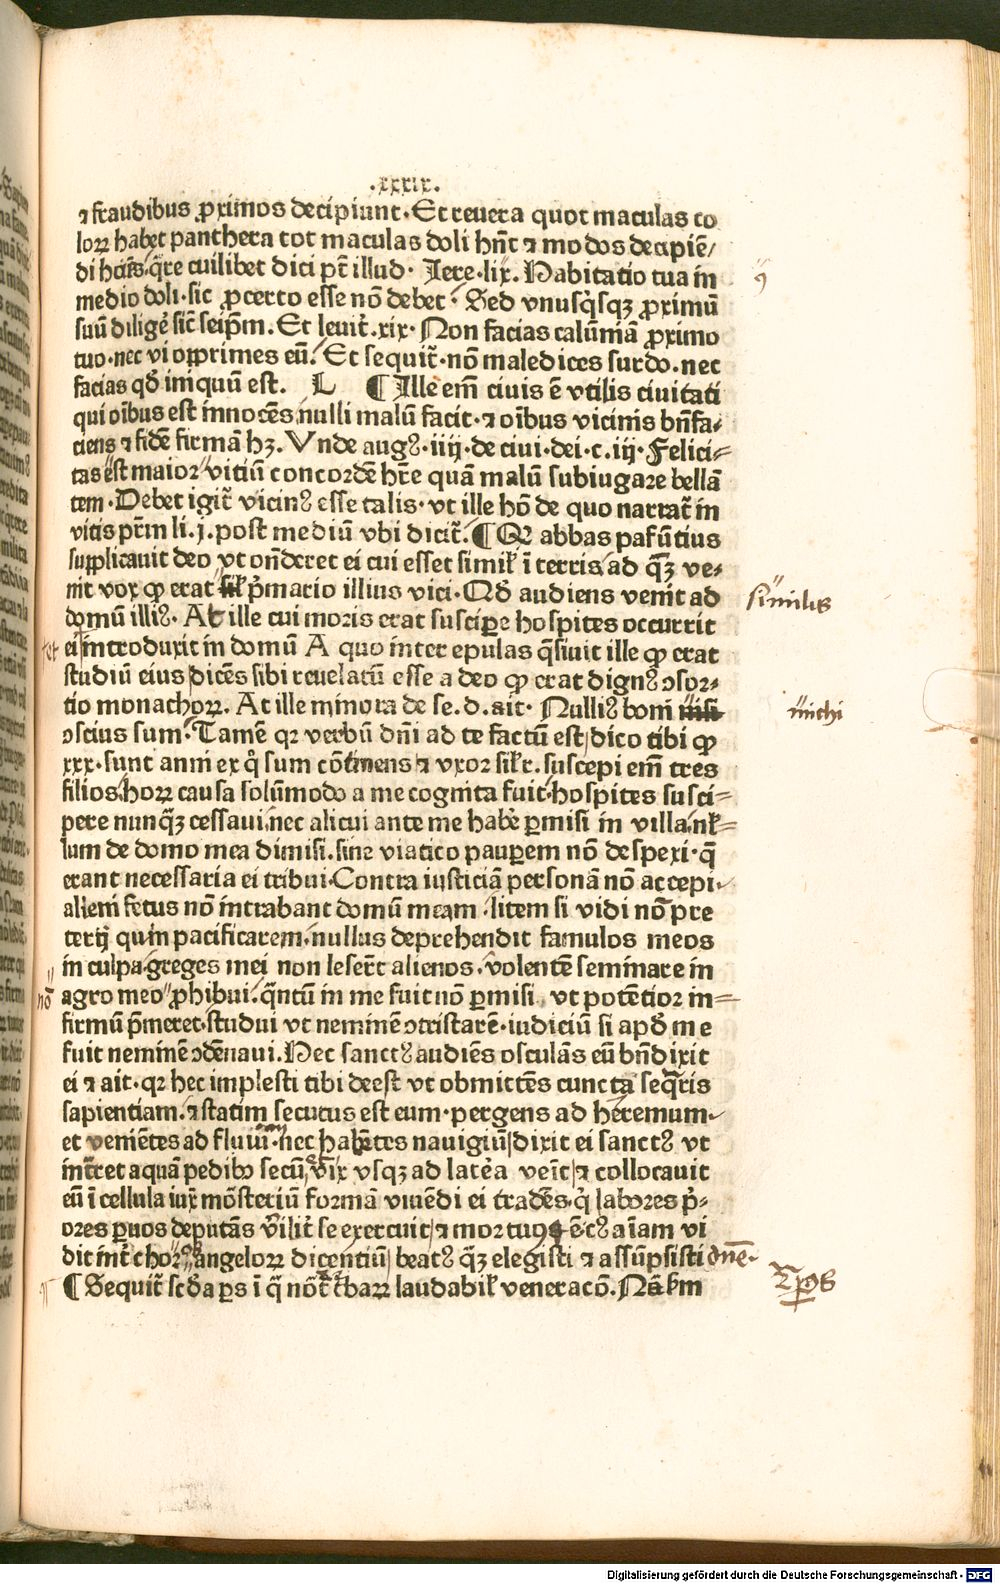 .xxxix.
⁊ fraudibus ꝓximos decipiunt. Et reuera quot maculas co
loꝝ habet panthera tot maculas doli hn̄t ⁊ modos decipiē/
di hoīes. q̄re cuilibet dici pōt illud. Iere. lix. Habitatio tua in
medio doli. sic ꝓcerto esse nō debet. Sed vnusq̄sqꝫ ꝓximū
suū diliget̄ sic̄ seip̄m. Et leuit̄. xix. Non facias calūniā ꝓximo
tuo. nec vi opprimes eū. Et sequit̄. nō maledices surdo. nec
facias qd̄ iniquū est. L ¶ Ille em̄ ciuis ē vtilis ciuitati
qui oībus est innocēs, nulli malū facit. ⁊ oībus vicinis bn̄fa-
ciens ⁊ fidē firmā hꝫ. Vnde augꝰ. iiij. de ciui. dei. c. iij. Felici-
tas est maior vitiū concordē hr̄e quā malū subiugare bellā
tem. Debet igit̄ vicinꝰ esse talis. vt ille hō de quo narrat̄ in
vitis pr̄m li. j. post mediū vbi dicit̄. ¶ Q abbas pafūtius
supplicauit deo vt on̄deret ei cui esset simił ī terris. ad q̄ꝫ ve-
nit vox ꝙ erat sił p̄mario illius vici. Qd̄ audiens venit ad
domū illiꝰ. At ille cui moris erat suscipe̱ hospites occurrit
ei introduxit in domū A quo inter epulas q̄siuit ille ꝙ erat
studiū eius dicēs sibi reuelatū esse a deo ꝙ erat dignꝰ ꝯsor-
tio monachoꝝ. At ille minora de se. d. ait. Nulliꝰ boni nisi
ꝯscius sum. Tamē qꝛ verbū dn̄i ad te factū est, dico tibi ꝙ
xxx. sunt anni ex q̊ sum cōtinens ⁊ vxor silr̄. suscepi em̄ tres
filios, hoꝝ causa solūmodo a me cognita fuit. hospites susci-
pere nunq̄ꝫ cessaui, nec alicui ante me habe̱ ꝑmisi in villa. nł-
lum de domo mea dimisi. sine viatico paupem nō despexi. q̄
erant necessaria ei tribui. Contra iusticiā personā nō accepi.
alieni fetus nō intrabant domū meam. litem si vidi nō pre
terij quin pacificarem. nullus deprehendit famulos meos
in culpa. greges mei non leserūt alienos. volentē seminare in
agro meo ꝓhibui. q̄ntū in me fuit nō ꝑmisi, vt potētior in-
firmū p̄meret. studui vt neminē ꝯtristarē. iudiciū si apd̄ me
fuit neminē ꝯdēnaui. Hec sanctꝰ audiēs osculās eū bn̄dixit
ei ⁊ ait. qꝛ hec implesti tibi deest vt obmittēs cuncta seq̄ris
sapientiam. ⁊ statim secutus est eum. pergens ad heremum.
et veniētes ad fluuiū. nec habētes nauigiū, dixit ei sanctꝰ vt
intret aquā pedibꝰ secū, vix vsqꝫ ad latera venit, ⁊ collocauit
eū ī cellula iux̄ mōsteriū formā viuēdi ei tradēs. q̇ labores p̄-
ores paruos deputās viriliter se exercuit, ⁊ mortuꝰ ē. cꝰ aīam vi
dit int̄ choros angeloꝝ dicentiū, beatꝰ q̄ꝫ elegisti ⁊ assūpsisti dn̄e.
¶ Sequit̄ scd̄a pars ī q̄ nōt̄ thaꝝ laudabił veneracō. Nā sm̄
similis
michi
nō